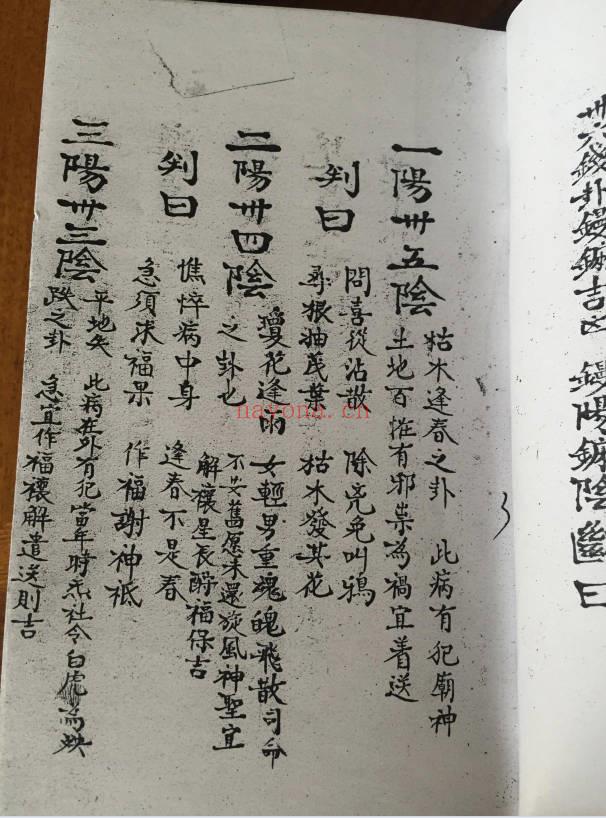 卅六錢卦鏝鐝吉凶 鏝陽鐝陰 斷曰
一陽卅五陰
枯木逢春之卦 此病有犯廟神
土地百恠有邪祟為禍宜着送
判曰
問喜從沾散 除免叫鴉
尋根抽茂葉 枯木發其花
二陽卅四陰
瓊花逢雨 女輕男重魂魄飛散司命
之卦也 不安舊愿未還旋風神聖宜
解禳星辰酹福保吉
判曰
憔悴病中身 逢春不是春
急須求福果 作福謝神祇
三陽卅三陰
平地失 此病在外有犯當年時杰社令白虎為殃
跌之卦 急宜作福禳解遣送則吉
nayona.cn